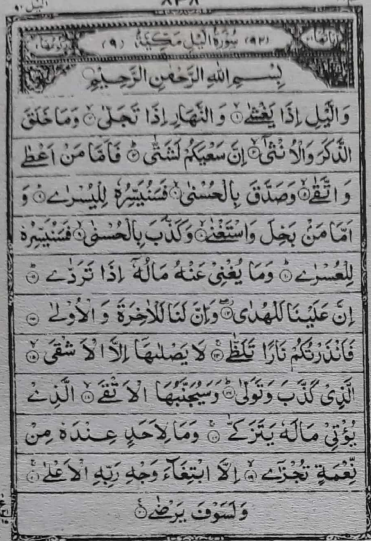 ٨٣٨
(٩٢) سُوْرَةُ الَّيْلِ مَكِّيَّةٌ (٩)
بِسْمِ اللهِ الرَّحْمٰنِ الرَّحِيْمِ
وَالَّيْلِ اِذَا يَغْشٰى ۙ وَالنَّهَارِ اِذَا تَجَلّٰى ۙ وَمَا خَلَقَ
الذَّكَرَ وَالْاُنْثٰى ۙ اِنَّ سَعْيَكُمْ لَشَتّٰى ؕ فَاَمَّا مَنْ اَعْطٰى
وَاتَّقٰى ۙ وَصَدَّقَ بِالْحُسْنٰى ۙ فَسَنُيَسِّرُهٗ لِلْيُسْرٰى ؕ وَ
اَمَّا مَنْۢ بَخِلَ وَاسْتَغْنٰى ۙ وَكَذَّبَ بِالْحُسْنٰى ۙ فَسَنُيَسِّرُهٗ
لِلْعُسْرٰى ؕ وَمَا يُغْنِيْ عَنْهُ مَالُهٗۤ اِذَا تَرَدّٰى ؕ
اِنَّ عَلَيْنَا لَلْهُدٰى ۖ وَاِنَّ لَنَا لَلْاٰخِرَةَ وَالْاُوْلٰى
فَاَنْذَرْتُكُمْ نَارًا تَلَظّٰى ۚ لَا يَصْلٰىهَاۤ اِلَّا الْاَشْقَى ۙ
الَّذِيْ كَذَّبَ وَتَوَلّٰى ؕ وَسَيُجَنَّبُهَا الْاَتْقَى ۙ الَّذِيْ
يُؤْتِيْ مَالَهٗ يَتَزَكّٰى ۚ وَمَا لِاَحَدٍ عِنْدَهٗ مِنْ
نِّعْمَةٍ تُجْزٰۤى ۙ اِلَّا ابْتِغَآءَ وَجْهِ رَبِّهِ الْاَعْلٰى ۚ
وَلَسَوْفَ يَرْضٰى